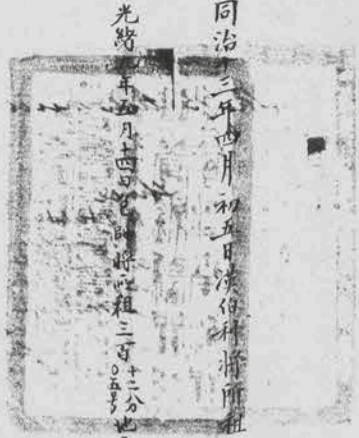 同治十三年四月初五日漢伯科將所租
光緒年五月十四日包師將所租三百十二分〇五号地